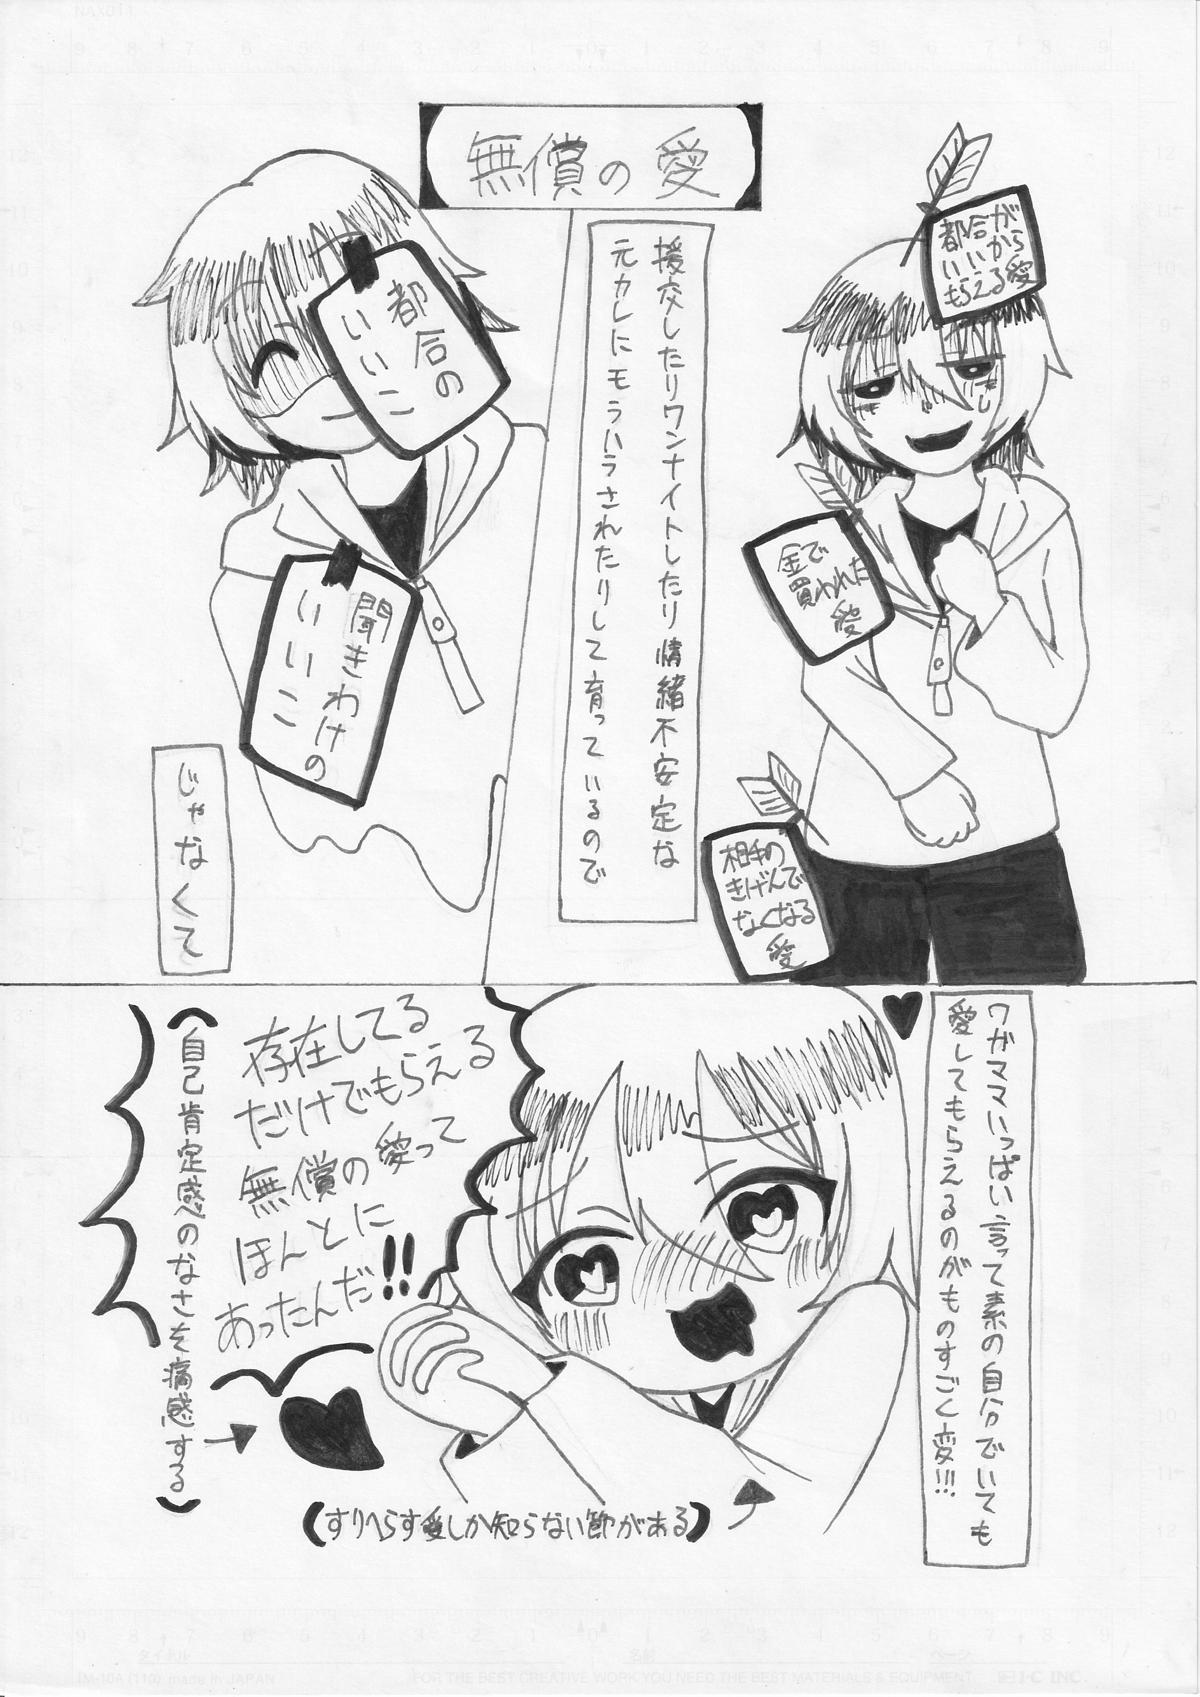 無償の愛
都合が
いいから
もらえる愛
金で
買われた
愛
相手の
きげんで
なくなる
愛
援交したりワンナイトしたり情緒不安定な
元カレにモラハラされたりして育っているので
都合の
いいこ
聞きわけの
いいこ
じゃなくて
ワガママいっぱい言って素の自分でいても
愛してもらえるのがものすごく変!!!
存在してる
だけでもらえる
無償の愛って
ほんとに
あったんだ!!
(自己肯定感のなさを痛感する)
(すりへらす愛しか知らない節がある)
NAX011
タイトル
名前
ページ
IM-10A (110) made in JAPAN
FOR THE BEST CREATIVE WORK YOU NEED THE BEST MATERIALS & EQUIPMENT
I·C INC.